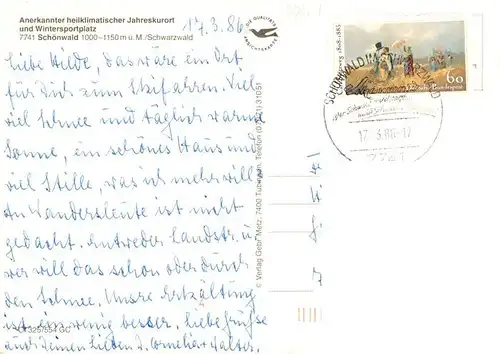 Anerkannter heilklimatischer Jahreskurort
und Wintersportplatz
7741 Schönwald 1000–1150 m ü. M./Schwarzwald
17.3.86
Liebe Hilde, das wäre ein Ort
für Dich zum Skifahren. Viel
viel Schnee und täglich warme
Sonne, ein schönes Haus und
viel Stille, was ich mehr will
An Wandersleute ist nicht
gedacht. Entweder Landstr. u.
wer will das schon oder durch
den Schnee. Unsre Erkältung
ist ein wenig besser. Liebe Grüße
und Deinen Lieben D. Cornelia + Walter
© Verlag Gebr. Metz, 7400 Tübingen, Telefon (07071) 31051
1808-1885
60
SCHÖNWALD IM SCHWARZWALD
17.3.86-17
7741